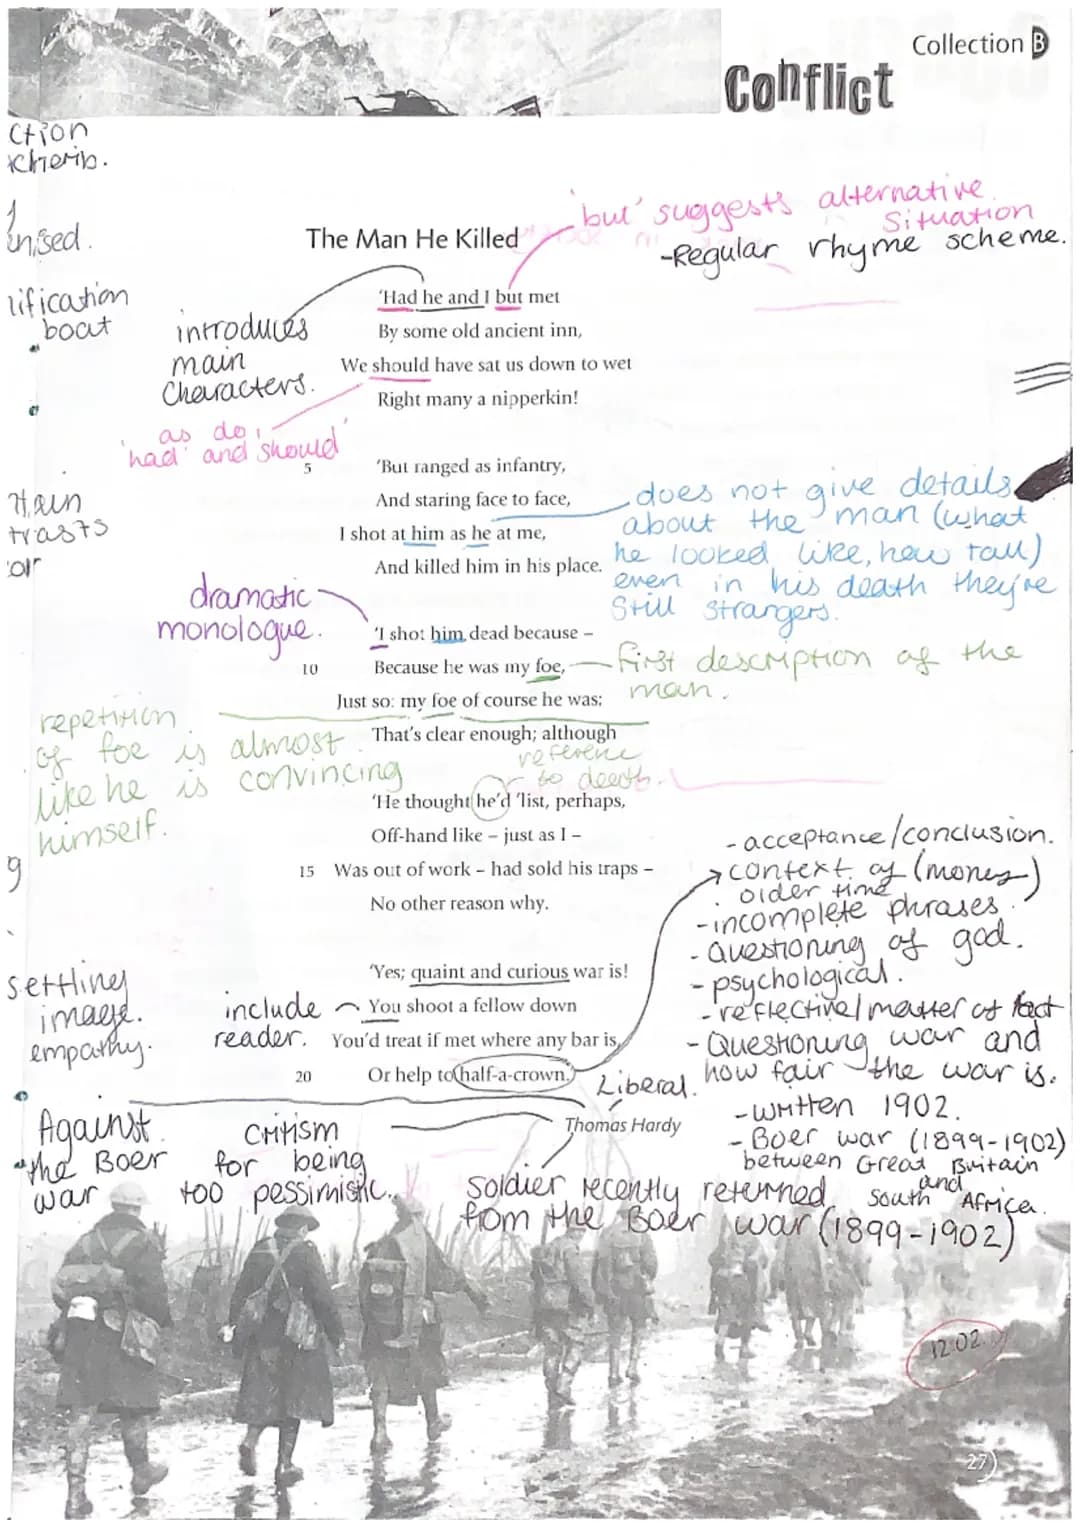 Collection B
Conflict
ction
enised.
lification
boat
'but' suggests alternative
situation
-Regular rhyme scheme.
The Man He Killed
introduces
main
characters.
'Had he and I but met
By some old ancient inn,
We should have sat us down to wet
Right many a nipperkin!
as do
'had' and should'
5 'But ranged as infantry,
And staring face to face,
I shot at him as he at me,
And killed him in his place.
does not give details
about the man (what
he looked like, how tall)
even in his death they're
still strangers.
trasts
dramatic
monologue.
'I shot him dead because –
10 Because he was my foe,
Just so: my foe of course he was;
That's clear enough; although
first description of the
man.
repetition
of foe is almost
like he is convincing
himself.
reference
to death.
'He thought he'd 'list, perhaps,
Off-hand like – just as I –
15 Was out of work – had sold his traps –
No other reason why.
g
settling
image.
empathy.
include
reader.
'Yes; quaint and curious war is!
You shoot a fellow down
You'd treat if met where any bar is,
20 Or help to half-a-crown.'
Thomas Hardy
- acceptance/conclusion.
context of (money)
older time
-incomplete phrases.
- Questioning of god.
- psychological.
- reflective/matter of fact
- Questioning war and
how fair the war is.
-written 1902.
- Boer war (1899-1902)
between Great Britain
and
South Africa.
Liberal.
Against
the Boer
war
critism
for being
too pessimistic.
soldier recently returned
from the Boer war (1899-1902)
12.02.
27